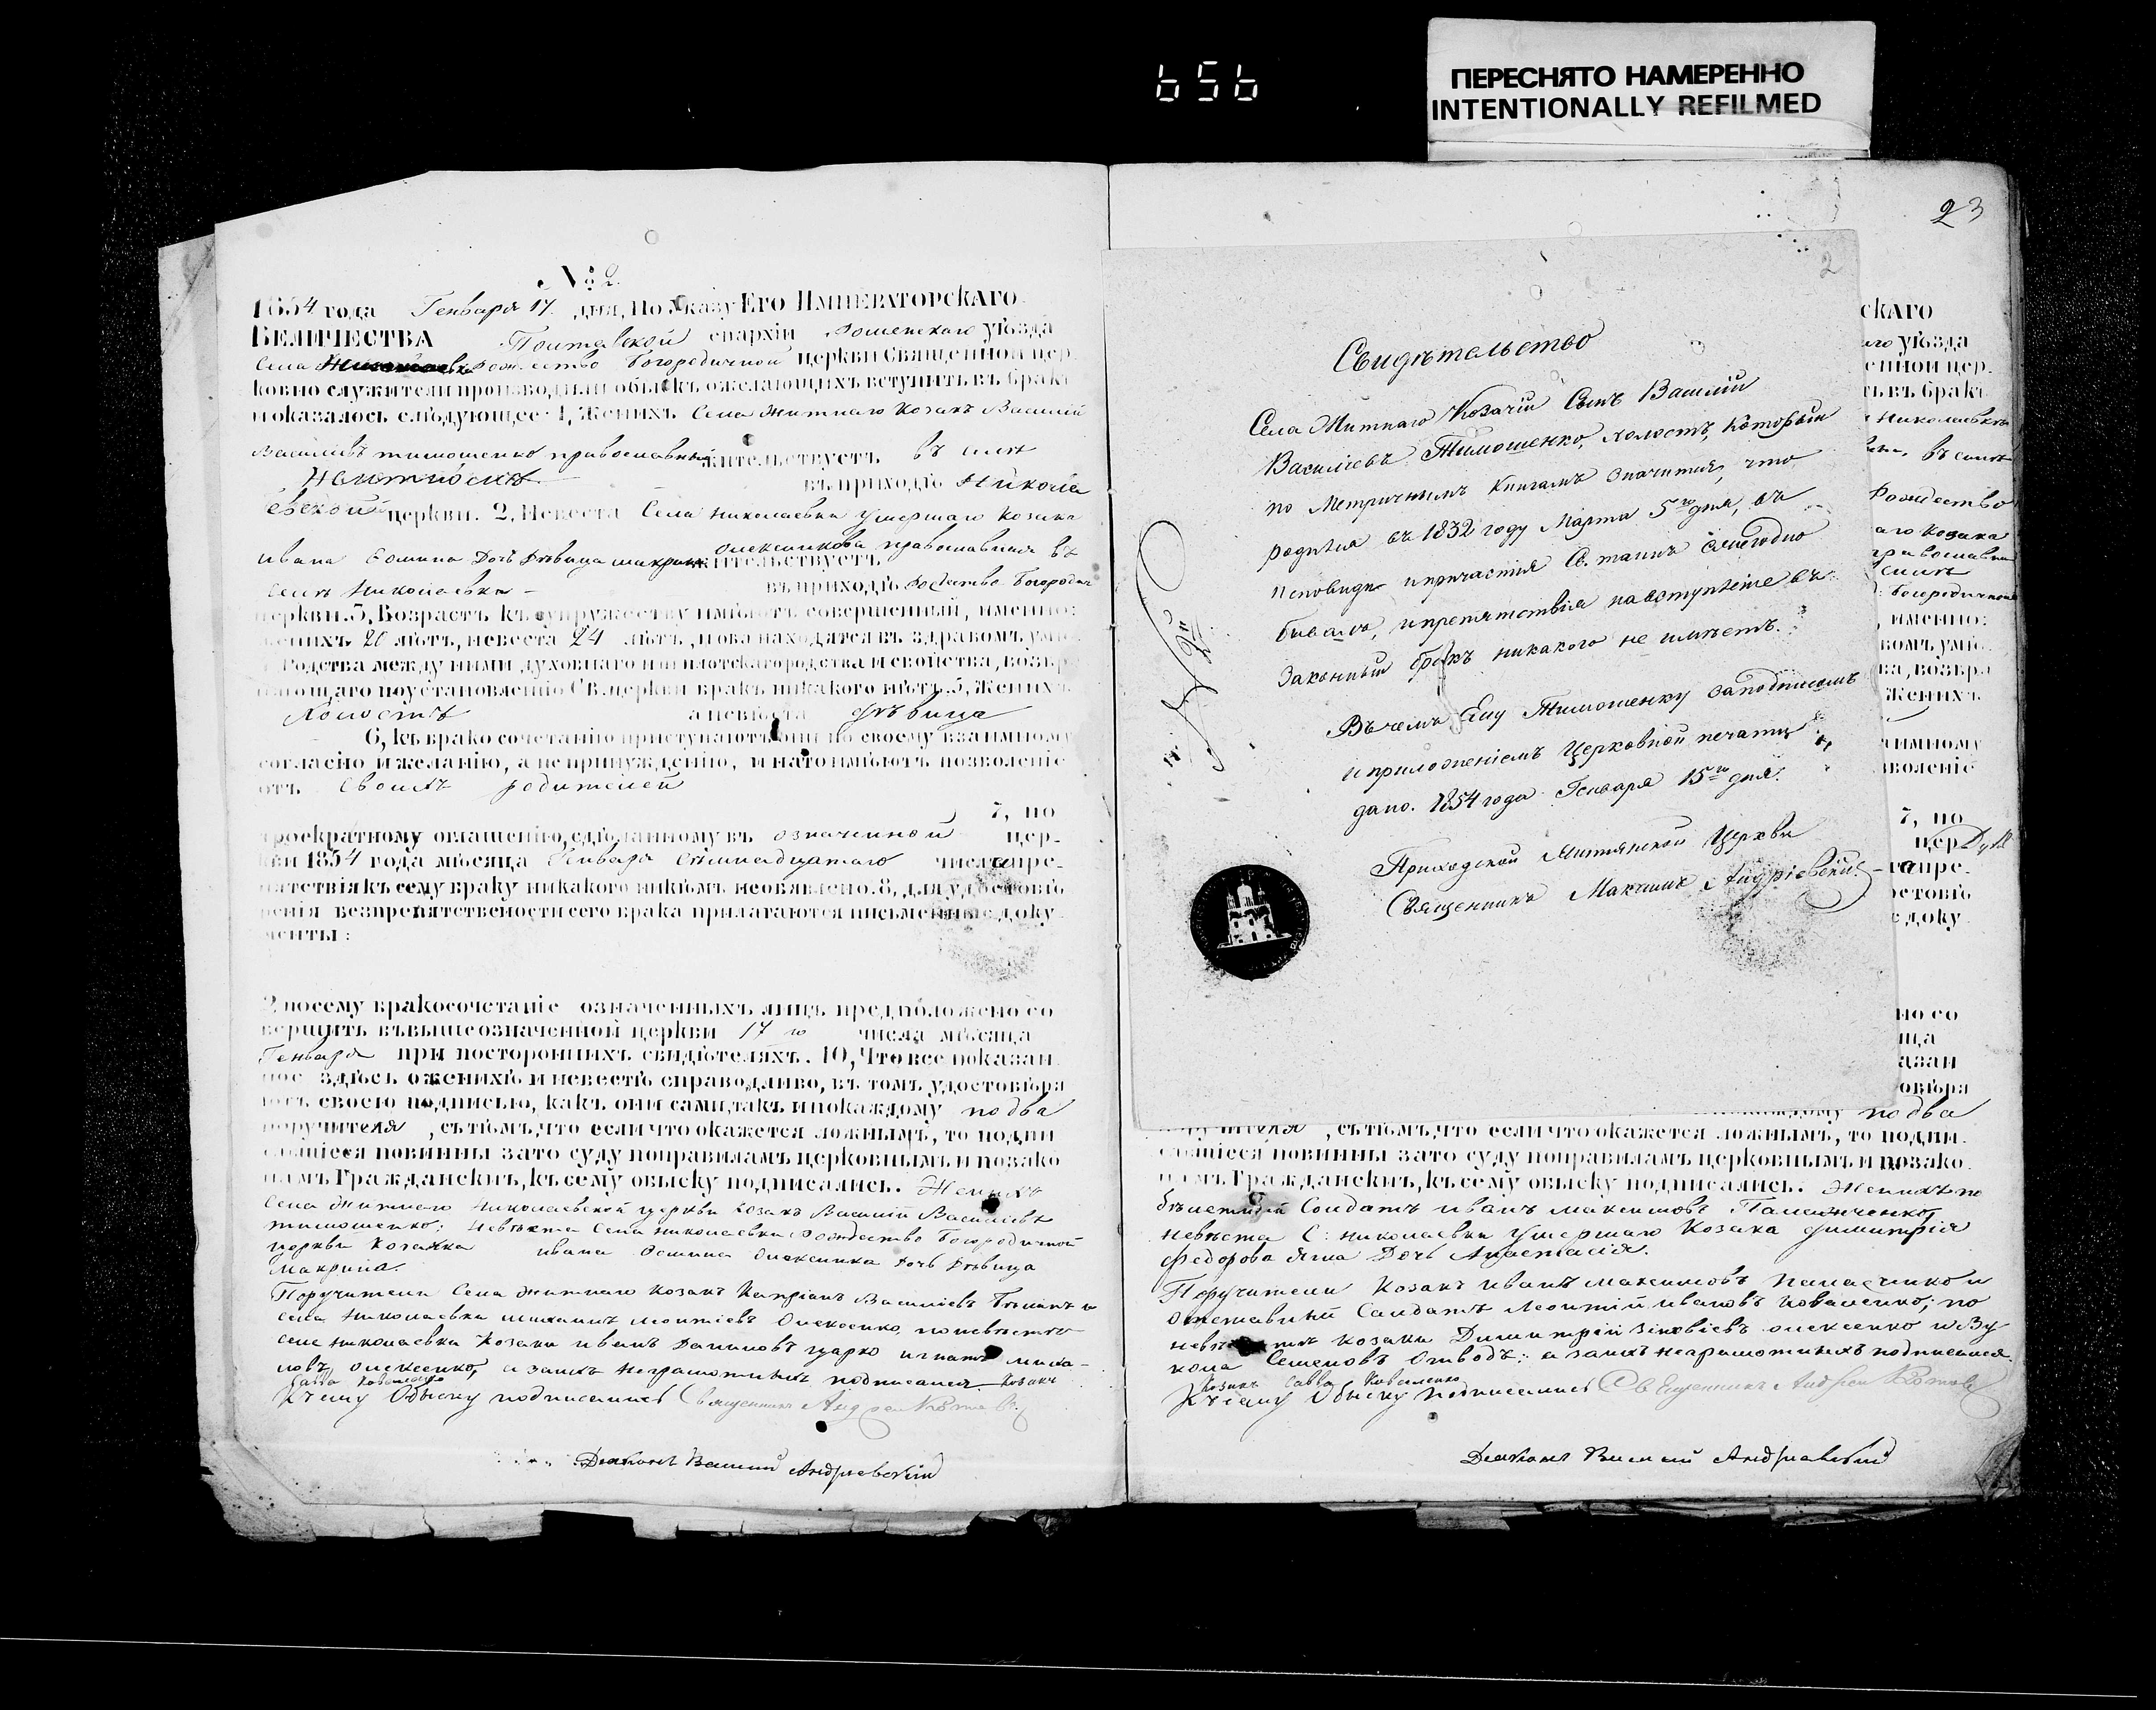 656
ПЕРЕСНЯТО НАМЕРЕННО
INTENTIONALLY REFILMED
№ 2.
1854 года Генваря 17. дня, По Указу Его Императорскаго
Величества Полтавской епархіи Роменскаго уѣзда
Села Рождество Богородичной церкви Священно и цер
ковно служители производили обыскъ о желающихъ вступить въ бракъ
и оказалось слѣдующее: 1, Женихъ Села Житнаго Козакъ Василій
Василіевъ Тимошенко православный жительствуетъ въ селѣ
въ приходѣ Никола
евской церкви. 2, Невеста Села Николаевки умершаго Козака
Ивана Дочь Дѣвица православная въ
жительствуетъ
селѣ Николаевки въ приходѣ Рождество Богородич
церкви. 3, Возрастъ къ супружеству имѣютъ совершенный, именно:
женихъ 20 лѣтъ, невеста 24 лѣтъ, и оба находятся въ здравомъ умѣ.
Родства между ними духовнаго или плотскаго родства и свойства, возбр
няющаго по установленію Св. церкви бракъ никакого нѣтъ. 5, Женихъ
Холостъ а невѣста дѣвица
6, къ врако сочетанію приступаютъ они по своему взаимному
согласію и желанію, а не принужденію, и на то имѣютъ позволеніе
отъ своихъ родителей
7, по
троекратному оглашенію, сдѣланному въ означенной цер-
кви 1854 года мѣсяца Генваря числа пре-
пятствія къ сему враку никакого никѣмъ необявлено. 8, для удостовѣ
ренія везпрепятствености сего врака прилагаются письменные доку
менты:
посему вракосочетаніе означенныхъ лицъ предположено со
вершить въ вышеозначенной церкви 17 го числа мѣсяца
Генваря при посторонныхъ свидѣтеляхъ. 10, Что все показан
ное здѣсь о женихѣ и невестѣ справодливо, въ томъ удостовѣря
ютъ своею подписью, какъ они сами, такъ и по каждому по два
поручителя, съ тѣмъ, что если что окажется ложнымъ, то подпи
савшіеся повинны за то суду по правиламъ церковнымъ и по зако
намъ Гражданскихъ, къ сему овыску подписались. Женихъ
Села Житнаго Николаевской церкви Козакъ Василій Василіевъ
Тимошенко; невѣста Села Николаевки Рождество Богородичной
церкви Козачка Ивана дочь дѣвица
Макрина.
Поручители Села Житнаго Козакъ Василіевъ
села Николаевки Олексенко, по невѣсте
селе Николаевка Козаки Иванъ и
новъ, Олексенко, а за ихъ неграмотныхъ подписался Козакъ
Савва Коваленко
К сему Обыску подписались Священникъ Андрей
Дьяконъ Василій Андріевскій
23
2
№ 2й
Свидѣтельство
Села Житнаго Козачій Сынъ Василій
Василіевъ Тимошенко, холостъ, который
по Метричнымъ Книгамъ значится, что
родился въ 1832 году Марта 5го дня, въ
исповиди и причастія Св. таинъ ежегодно
бывалъ, и препятствія на вступленіе въ
Законный бракъ никакого не имѣетъ.
Въ чемъ Ему Тимошенку за подписомъ
и приложеніемъ Церковной печати
дано. 1854 года Генваря 15го дня.
Приходской Житнянской Церкви
Священникъ Максимъ Андріевскій.
скаго
уѣзда
енно и цер.
ть въ бракъ
Николаевка
въ селѣ
Рождество
аго Козака
православная
селѣ
Богородичной
, именно:
вомъ умѣ.
ва, возбра
Женихъ
аимному
зволеніе
7, по
цер
пре.
остовѣ
доку
но со
ца
азан
овѣря
по два
, съ тѣмъ, что если что окажется ложнымъ, то подпи
савшіеся повинны за то суду по правиламъ церковнымъ и по зако
намъ Гражданскихъ, къ сему овыску подписались. Женихъ по
Солдатъ Иванъ Максимовъ
невѣста С: Николаевки умершаго Козака Димитрія
Федорова Дочь Анастасія.
Поручители Козакъ Иванъ Максимовъ и
отставный Солдатъ Леонтій Ивановъ Коваленко; по
козаки Димитрій Зіновіевъ Олексенко и
Семеновъ а за ихъ неграмотныхъ подписался
Козакъ Савва Коваленко
К сему Обыску подписались Священникъ Андрей
Дьяконъ Василій Андріевскій